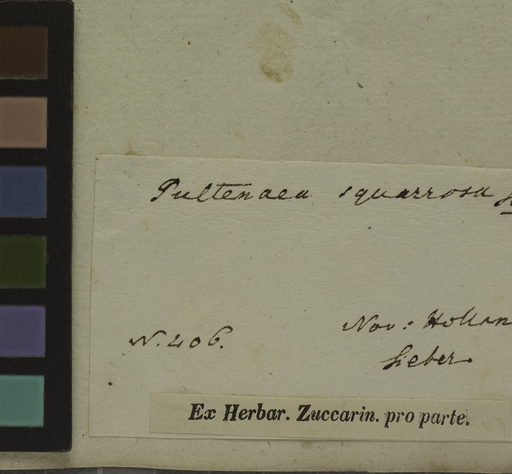 Pultenaea squarrosa
Nov: Hollan
N. 406.
Sieber
Ex Herbar. Zuccarin. pro parte.